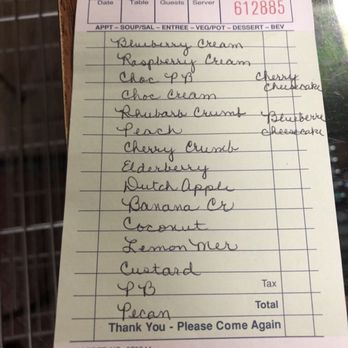 Date Table Guests Server 612885
APPT - SOUP/SAL - ENTREE - VEG/POT - DESSERT - BEV
Blueberry Cream
Raspberry Cream
Choc PB
Cherry
Cheesecake
Choc Cream
Rhubarb Crumb
Blueberre
cheesecake
Peach
Cherry Crumb
Elderberry
Dutch Apple
Banana Cr
Coconut
Lemon Mer
Custard
PB
Tax
Total
Pecan
Thank You - Please Come Again